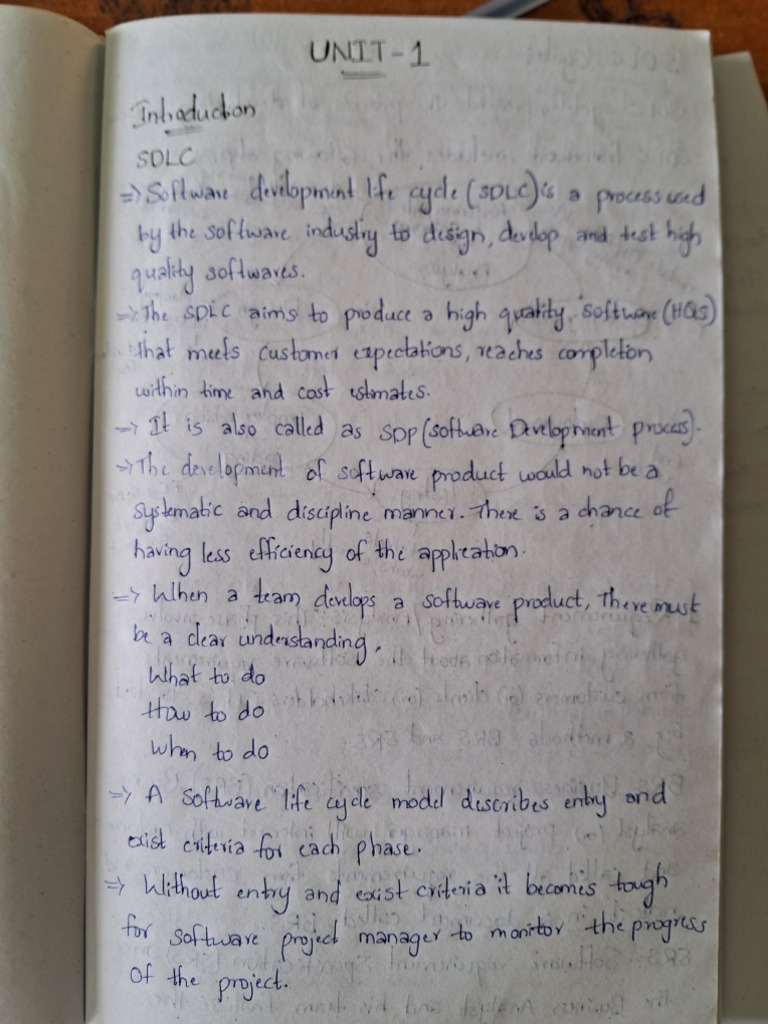 UNIT-1
Introduction
SDLC
=> Software development life cycle (SDLC) is a process used
by the software industry to design, develop and test high
quality softwares.
=> The SDLC aims to produce a high quality software (HQS)
that meets customer expectations, reaches completion
within time and cost estimates.
=> It is also called as SDP (software Development process).
=> The development of software product would not be a
systematic and discipline manner. There is a chance of
having less efficiency of the application.
=> When a team develops a software product, There must
be a clear understanding.
What to do
How to do
When to do
=> A Software life cycle model describes entry and
exist criteria for each phase.
=> Without entry and exist criteria it becomes tough
for software project manager to monitor the progress
of the project.